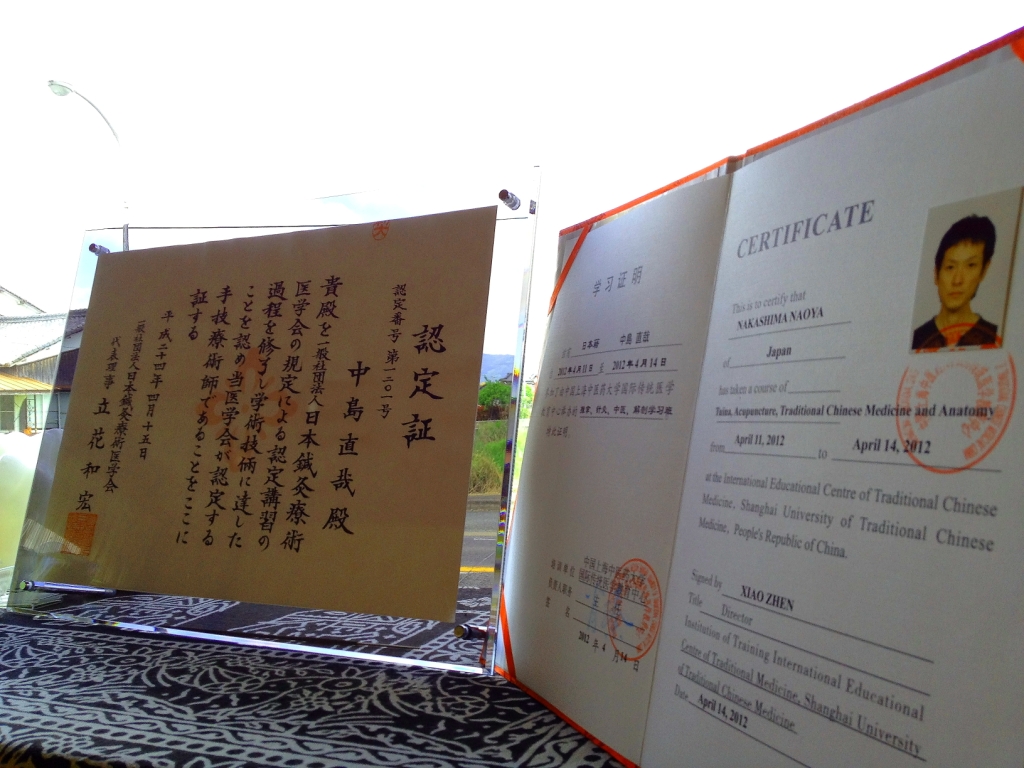 認定証
認定番号 第一二〇一号
中島直哉殿
貴殿を一般社団法人日本鍼灸療術
医学会の規定による認定講習の
過程を修了し学術技倆に達した
ことを認め当医学会が認定する
手技療術師であることをここに
証する
平成二十四年四月十五日
一般社団法人日本鍼灸療術医学会
代表理事 立花和宏
学习证明
日本籍 中島 直哉
2012年4月11日 至 2012年4月14日
中国上海中医药大学国际传统医学
推拿、针灸、中医、解剖学习班
特此证明。
中国上海中医药大学
2012 年 4 月 14 日
CERTIFICATE
This is to certify that
NAKASHIMA NAOYA
of Japan
has taken a course of
Tuina, Acupuncture, Traditional Chinese Medicine and Anatomy
from April 11, 2012 to April 14, 2012
at the International Educational Centre of Traditional Chinese
Medicine, Shanghai University of Traditional Chinese
Medicine, People's Republic of China.
Signed by XIAO ZHEN
Title Director
Institution of Training International Educational
Centre of Traditional Medicine, Shanghai University
of Traditional Chinese Medicine
Date April 14, 2012